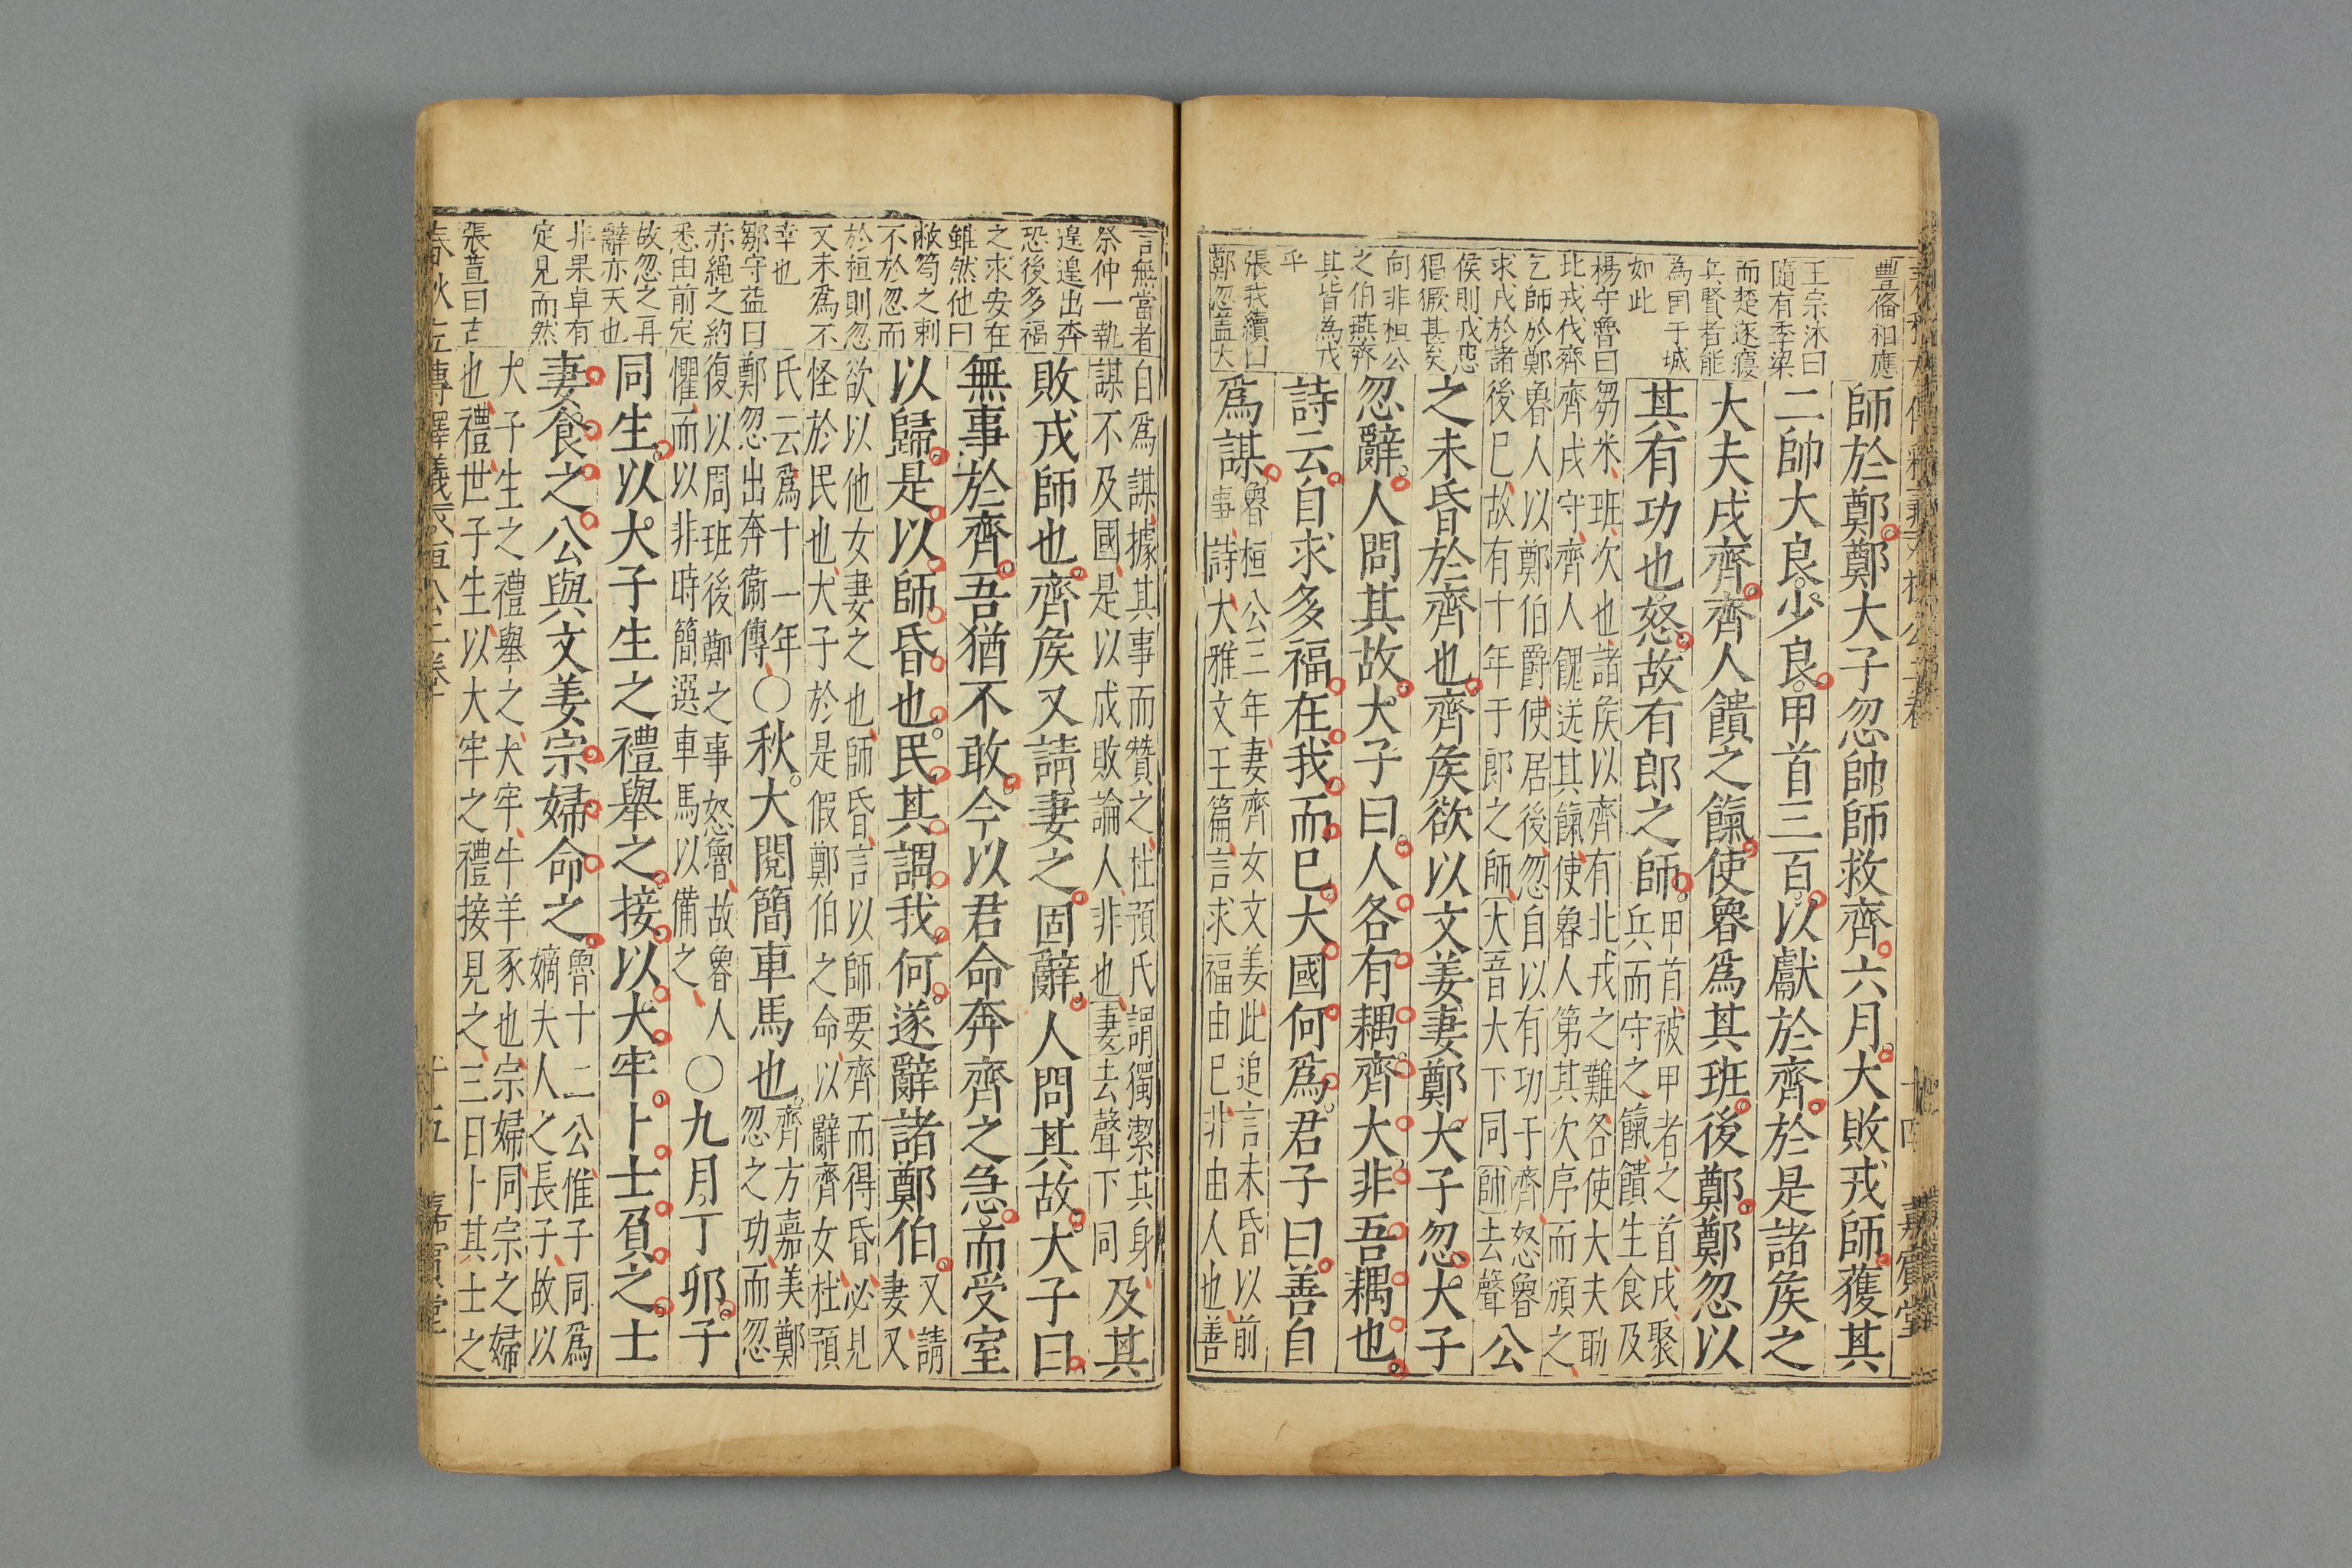 豐俻相應
王宗沐曰
隨有季梁
而楚逐寢
兵賢者能
為国于城
如此
楊守魯曰
北戎伐齊
乞師於鄭
求戍於諸
侯則戎患
猖獗甚矣
向非桓公
之伯燕齊
其皆為戎
乎
張我續曰
鄭忽蓋大
師於鄭鄭大子忽帥師救齊六月大敗戎師獲其
二帥大良少良甲首三百以獻於齊於是諸矦之
大夫戍齊齊人饋之餼使魯爲其班後鄭鄭忽以
其有功也怒故有郎之師
甲首被甲者之首戍聚
兵而守之餼饋生食及
芻米班次也諸矦以齊有北戎之難各使大夫助
齊戍守齊人餽送其餼使魯人第其次序而頒之
魯人以鄭伯爵使居後忽自以有功于齊怒魯
後巳故有十年于郎之師大音大下同帥去聲
公
之未昏於齊也齊矦欲以文姜妻鄭大子忽大子
忽辭人問其故大子曰人各有耦齊大非吾耦也
詩云自求多福在我而巳大國何爲君子曰善自
爲謀
魯桓公三年妻齊女文姜此追言未昏以前
事詩大雅文王篇言求福由巳非由人也善
嘉賔堂
言無當者
祭仲一執
遑遑出奔
恐後多福
之求安在
雖然他曰
敝笱之刺
不於忽而
於桓則忽
又未爲不
幸也
鄒守益曰
赤繩之約
悉由前定
故忽之再
辭亦天也
非果卓有
定見而然
張萱曰古
自爲謀據其事而贊之杜預氏謂獨潔其身
謀不及國是以成敗論人非也妻去聲下同
及其
敗戎師也齊矦又請妻之固辭人問其故大子曰
無事於齊吾猶不敢今以君命奔齊之急而受室
以歸是以師昏也民其謂我何遂辭諸鄭伯
又請
妻又
欲以他女妻之也師昏言以師要齊而得昏必見
怪於民也大子於是假鄭伯之命以辭齊女杜預
氏云爲十一年
鄭忽出奔衞傳
〇秋大閱簡車馬也
齊方嘉美鄭
忽之功而忽
復以周班後鄭之事怒魯故魯人
懼而以非時簡選車馬以備之
〇九月丁卯子
同生以大子生之禮舉之接以大牢卜士負之士
妻食之公與文姜宗婦命之
魯十二公惟子同爲
嫡夫人之長子故以
大子生之禮舉之大牢牛羊豕也宗婦同宗之婦
也禮世子生以大牢之禮接見之三日卜其士之
春秋左傳釋義 桓公 卷
十五
嘉賔堂